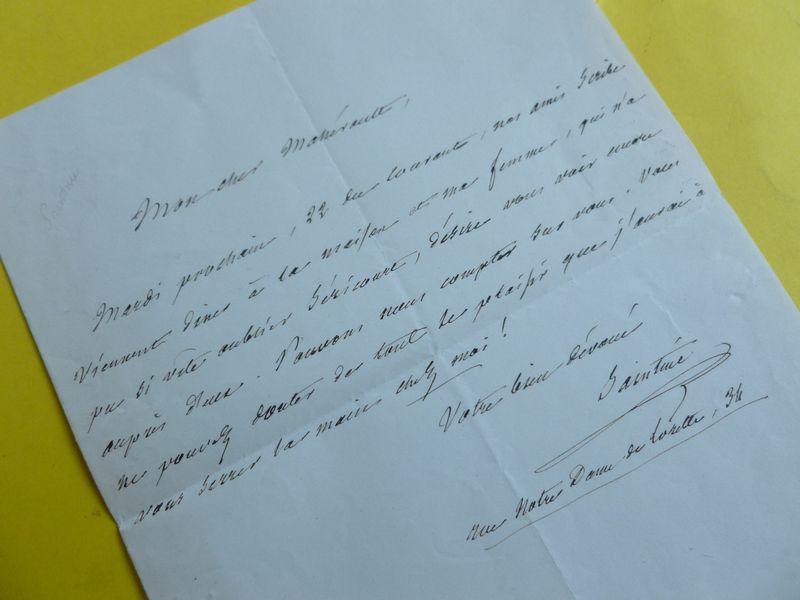 Mon cher Mahérault,
Mardi prochain, 22 du courant, nos amis Scribe
viennent diner à la maison et ma femme, qui n'a
pu si vîte oublier Séricourt, désire vous voir encore
auprès d'eux. Pouvons nous compter sur vous. Vous
ne pouvez douter de tout le plaisir que j'aurai à
vous serrer la main chez moi!
Votre bien dévoué
Saintine
rue Notre Dame de Lorette, 34